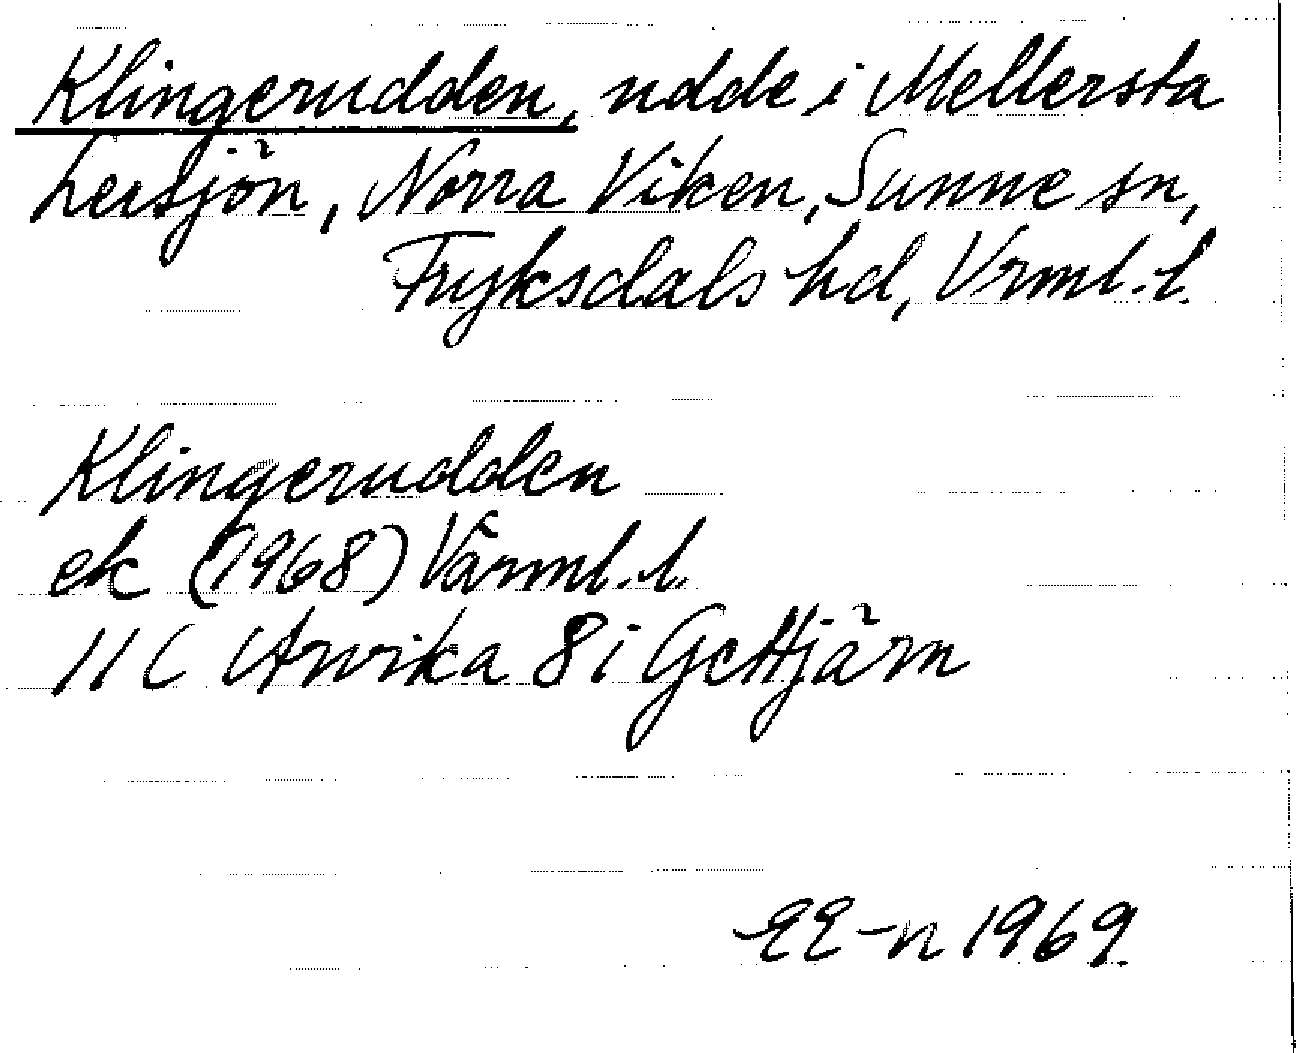 Klingerudden, udde i Mellersta
Lersjön, Norra Viken, Sunne sn,
Fryksdals hd, Vrml. l.
Klingerudden
ek (1968) Värml. l.
11 C Arvika 8 i Gettjärn
EE-n 1969.